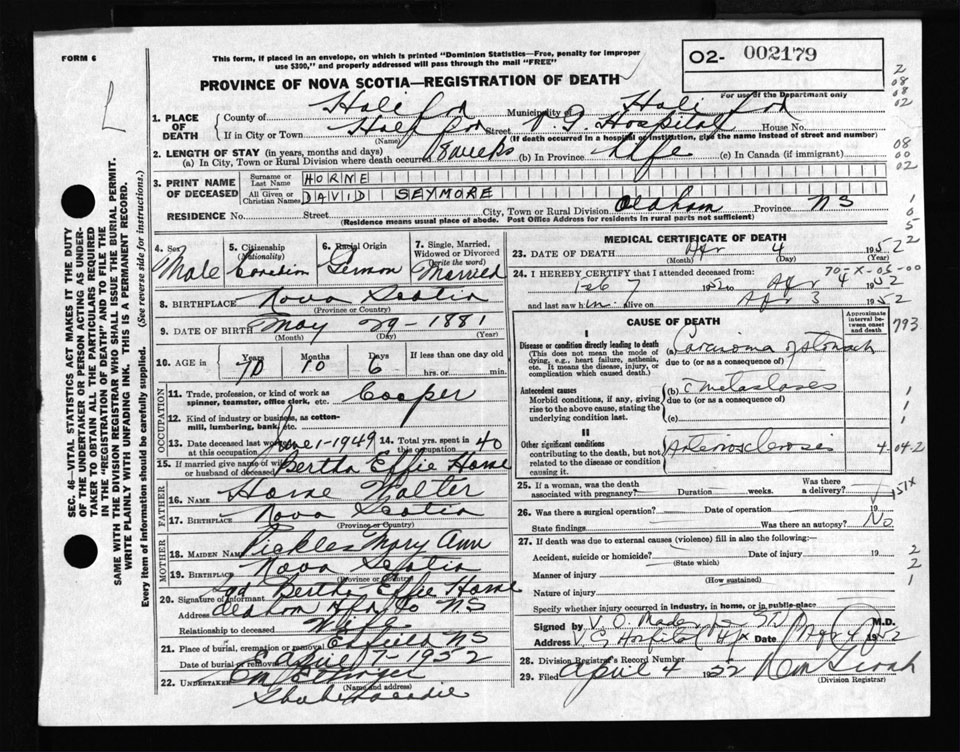 FORM 6
This form, if placed in an envelope, on which is printed "Dominion Statistics—Free, penalty for improper
use $300," and properly addressed will pass through the mail "FREE"
O2- 002179
For use of the Department only
PROVINCE OF NOVA SCOTIA—REGISTRATION OF DEATH
L
2
08
08
02
08
00
02
SEC. 46—VITAL STATISTICS ACT MAKES IT THE DUTY
OF THE UNDERTAKER OR PERSON ACTING AS UNDER-
TAKER TO OBTAIN ALL THE PARTICULARS REQUIRED
IN THE "REGISTRATION OF DEATH" AND TO FILE THE
SAME WITH THE DIVISION REGISTRAR WHO SHALL ISSUE THE BURIAL PERMIT.
WRITE PLAINLY WITH UNFADING INK. THIS IS A PERMANENT RECORD.
Every item of information should be carefully supplied. (See reverse side for instructions.)
1. PLACE OF DEATH
County of Halifax Municipality of Halifax
If in City or Town Halifax Street V G Hospital House No.
(Name) (If death occurred in a hospital or institution, give the name instead of street and number)
2. LENGTH OF STAY (in years, months and days)
(a) In City, Town or Rural Division where death occurred 8 weeks (b) In Province Life (c) In Canada (if immigrant)
3. PRINT NAME OF DECEASED
Surname or Last Name HORNE
All Given or Christian Names DAVID SEYMORE
RESIDENCE No. Street City, Town or Rural Division Oldham Province NS
(Residence means usual place of abode. Post Office Address for residents in rural parts not sufficient)
4. Sex Male
5. Citizenship (Nationality) Canadian
6. Racial Origin German
7. Single, Married, Widowed or Divorced (write the word) Married
8. BIRTHPLACE Nova Scotia
(Province or Country)
9. DATE OF BIRTH May 29-1881
(Month) (Day) (Year)
10. AGE in Years 70 Months 10 Days 6 If less than one day old hrs. or min.
OCCUPATION
11. Trade, profession, or kind of work as spinner, teamster, office clerk, etc. Cooper
12. Kind of industry or business, as cotton-mill, lumbering, bank, etc.
13. Date deceased last worked at this occupation June 1-1949 14. Total yrs. spent in this occupation 40
15. If married give name of wife or husband of deceased Bertha Effie Horne
FATHER
16. NAME Horne Walter
17. BIRTHPLACE Nova Scotia
(Province or Country)
MOTHER
18. MAIDEN NAME Pickles Mary Ann
19. BIRTHPLACE Nova Scotia
(Province or Country)
20. Signature of Informant Bertha Effie Horne
Address Oldham Hfx Co NS
Relationship to deceased Wife
21. Place of burial, cremation or removal Enfield NS
Date of burial or removal April 7-1952
22. UNDERTAKER
(Name and address)
Shubenacadie
MEDICAL CERTIFICATE OF DEATH
23. DATE OF DEATH Apr 4 1952
(Month) (Day) (Year)
24. I HEREBY CERTIFY that I attended deceased from:
70-X-05-00
Feb 7 1952 to Apr 4 1952
and last saw him alive on Apr 3 1952
CAUSE OF DEATH
Approximate interval between onset and death
793
I
Disease or condition directly leading to death
(This does not mean the mode of dying, e.g., heart failure, asthenia, etc. It means the disease, injury, or complication which caused death.)
(a) Carcinoma of stomach
due to (or as a consequence of)
Antecedent causes
Morbid conditions, if any, giving rise to the above cause, stating the underlying condition last.
(b) c metastases
due to (or as a consequence of)
(c)
II
Other significant conditions contributing to the death, but not related to the disease or condition causing it.
Arteriosclerosis
4-04-2
25. If a woman, was the death associated with pregnancy? Duration weeks. Was there a delivery?
151X
26. Was there a surgical operation? Date of operation 19
State findings Was there an autopsy? No
27. If death was due to external causes (violence) fill in also the following:
Accident, suicide or homicide? Date of injury 19
(State which)
Manner of injury
(How sustained)
Nature of injury
Specify whether injury occurred in industry, in home, or in public place
Signed by V. O. Mader M.D.
Address V G Hospital Hfx Date Apr 4 1952
28. Division Registrar's Record Number
29. Filed April 4 1952
(Division Registrar)